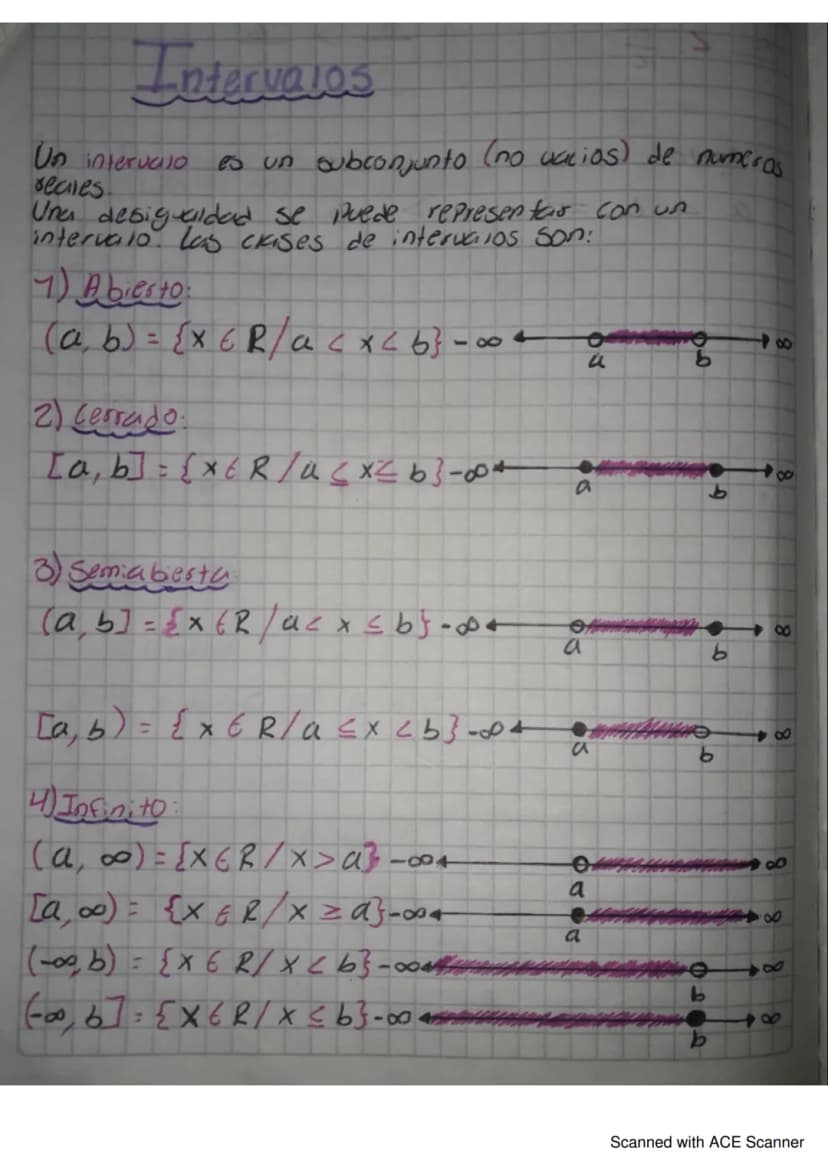 Intervalos
Un intervalo es un subconjunto (no vacios) de numeros
reales.
Una desigualdad se puede representar con un
intervalo. Las clases de intervalos son:
1) Abierto:
(a, b) = {x ∈ R / a < x < b} -∞ ∞
a b
2) Cerrado:
[a, b] = {x ∈ R / a ≤ x ≤ b} -∞ ∞
a b
3) Semiabierta
(a, b] = {x ∈ R / a < x ≤ b} -∞ ∞
a b
[a, b) = {x ∈ R / a ≤ x < b} -∞ ∞
a b
4) Infinito:
(a, ∞) = {x ∈ R / x > a} -∞ ∞
a
[a, ∞) = {x ∈ R / x ≥ a} -∞ ∞
a
(-∞, b) = {x ∈ R / x < b} -∞ ∞
b
(-∞, b] = {x ∈ R / x ≤ b} -∞ ∞
b
Scanned with ACE Scanner